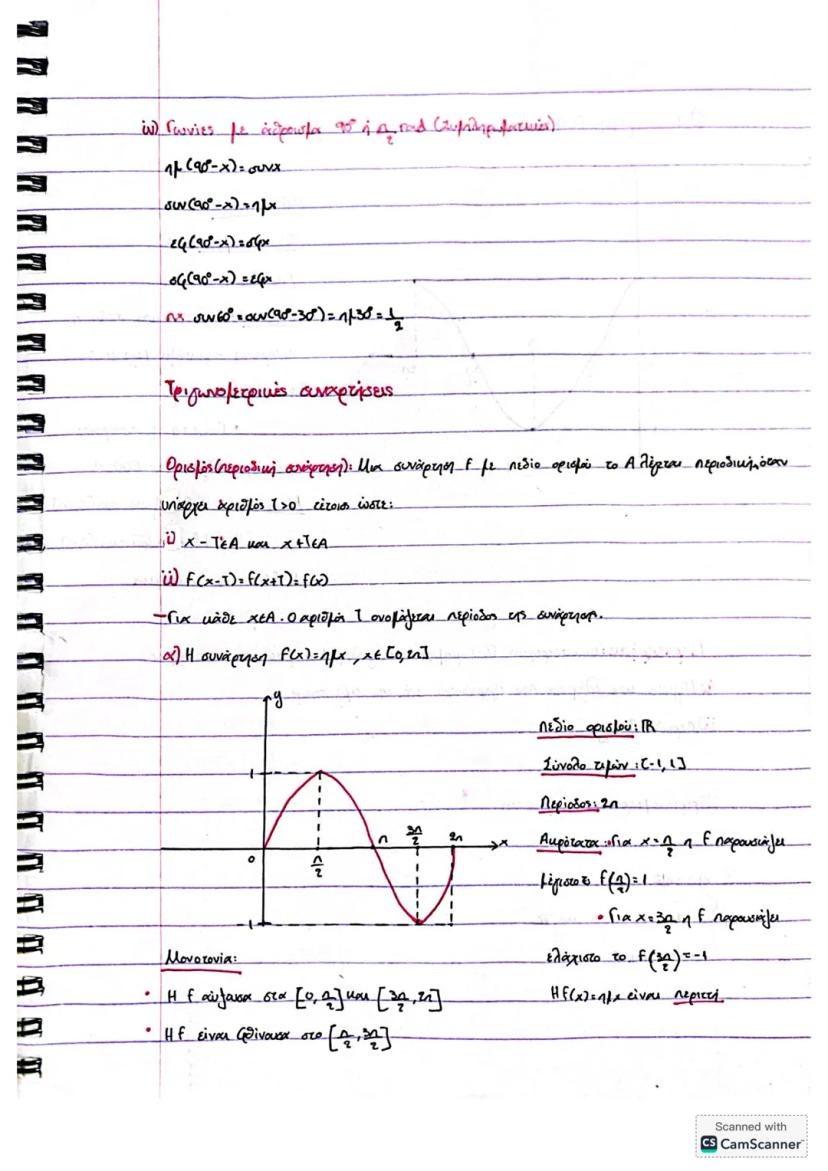 iv) Γωνίες με άθροισμα 90° ή π/2 rad (Συμπληρωματικές)
ημ(90°-x)=συνx
συν(90°-x)=ημx
εφ(90°-x)=σφx
σφ(90°-x)=εφx
πχ συν60°=συν(90°-30°)=ημ30°=1/2
Τριγωνομετρικές συναρτήσεις
Ορισμός(περιοδική συνάρτηση): Μια συνάρτηση f με πεδίο ορισμού το Α λέγεται περιοδική, όταν
υπάρχει αριθμός T>0 τέτοιος ώστε:
i) x-T∈A και x+T∈A
ii) f(x-T)=f(x+T)=f(x)
-Για κάθε x∈A. Ο αριθμός T ονομάζεται περίοδος της συνάρτησης.
α) Η συνάρτηση f(x)=ημx, x∈[0,2π]
y
1
0
π/2
π
3π/2
2π
x
-1
Πεδίο ορισμού: ℝ
Σύνολο τιμών: [-1,1]
Περίοδος: 2π
Ακρότατα: •Για x=π/2 η f παρουσιάζει
μέγιστο το f(π/2)=1
•Για x=3π/2 η f παρουσιάζει
ελάχιστο το f(3π/2)=-1
Η f(x)=ημx είναι περιττή
Μονοτονία:
• Η f αύξουσα στα [0,π/2] και [3π/2,2π]
• Η f είναι φθίνουσα στο [π/2,3π/2]
Scanned with
CS CamScanner